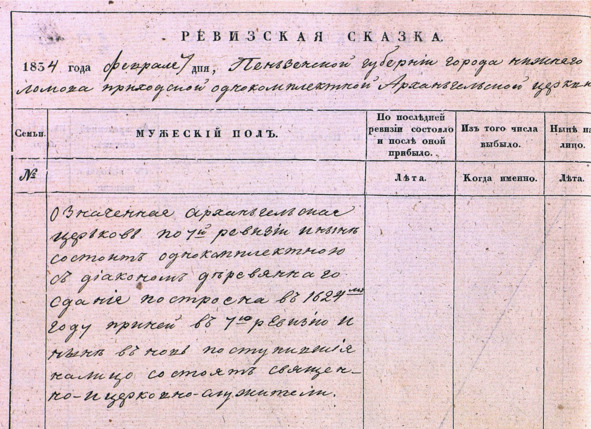 РЕВИЗСКАЯ СКАЗКА.
1834 года февраля 7 дня, Пеньзенской губерніи города нижнего
ломова приходской однокомплектной Архангельской церкви
Семьи.
МУЖЕСКІЙ ПОЛЪ.
По послѣдней
ревизіи состояло
и послѣ оной
прибыло.
Изъ того числа
выбыло.
Нынѣ на
лицо.
№
Лѣта.
Когда именно.
Лѣта.
Означенная архангельская
церьковь по 7ю ревизіи и нынѣ
состоитъ однокомплектною
съ діакономъ деревяннаго
зданіе построена въ 1624мъ
году при ней въ 7ю ревизію и
нынѣ въ новь поступившія
налицо состоятъ священ-
но-и церковно-служители.